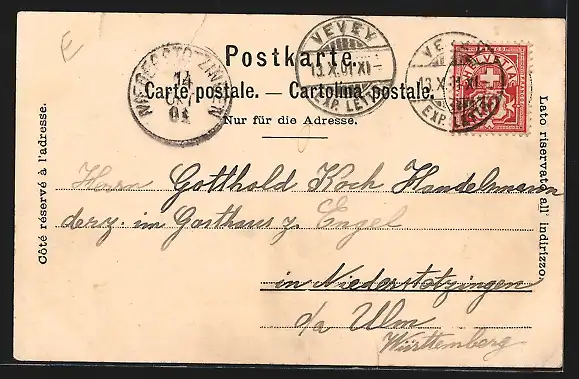 E
Postkarte.
Carte postale. — Cartolina postale.
Nur für die Adresse.
Côté réservé à l'adresse.
Lato riservato all' indirizzo.
NIEDERSTOTZINGEN
14
OKT
01
VEVEY
13.X.01 XI–
EXP. LETT.
13.X.01 XI–
EXP. LETT.
HELVETIA
10
Herrn Gotthold Koch Handelmann
derz. im Gasthaus z. Engel
in Niederstotzingen
d/a Ulm
Württemberg